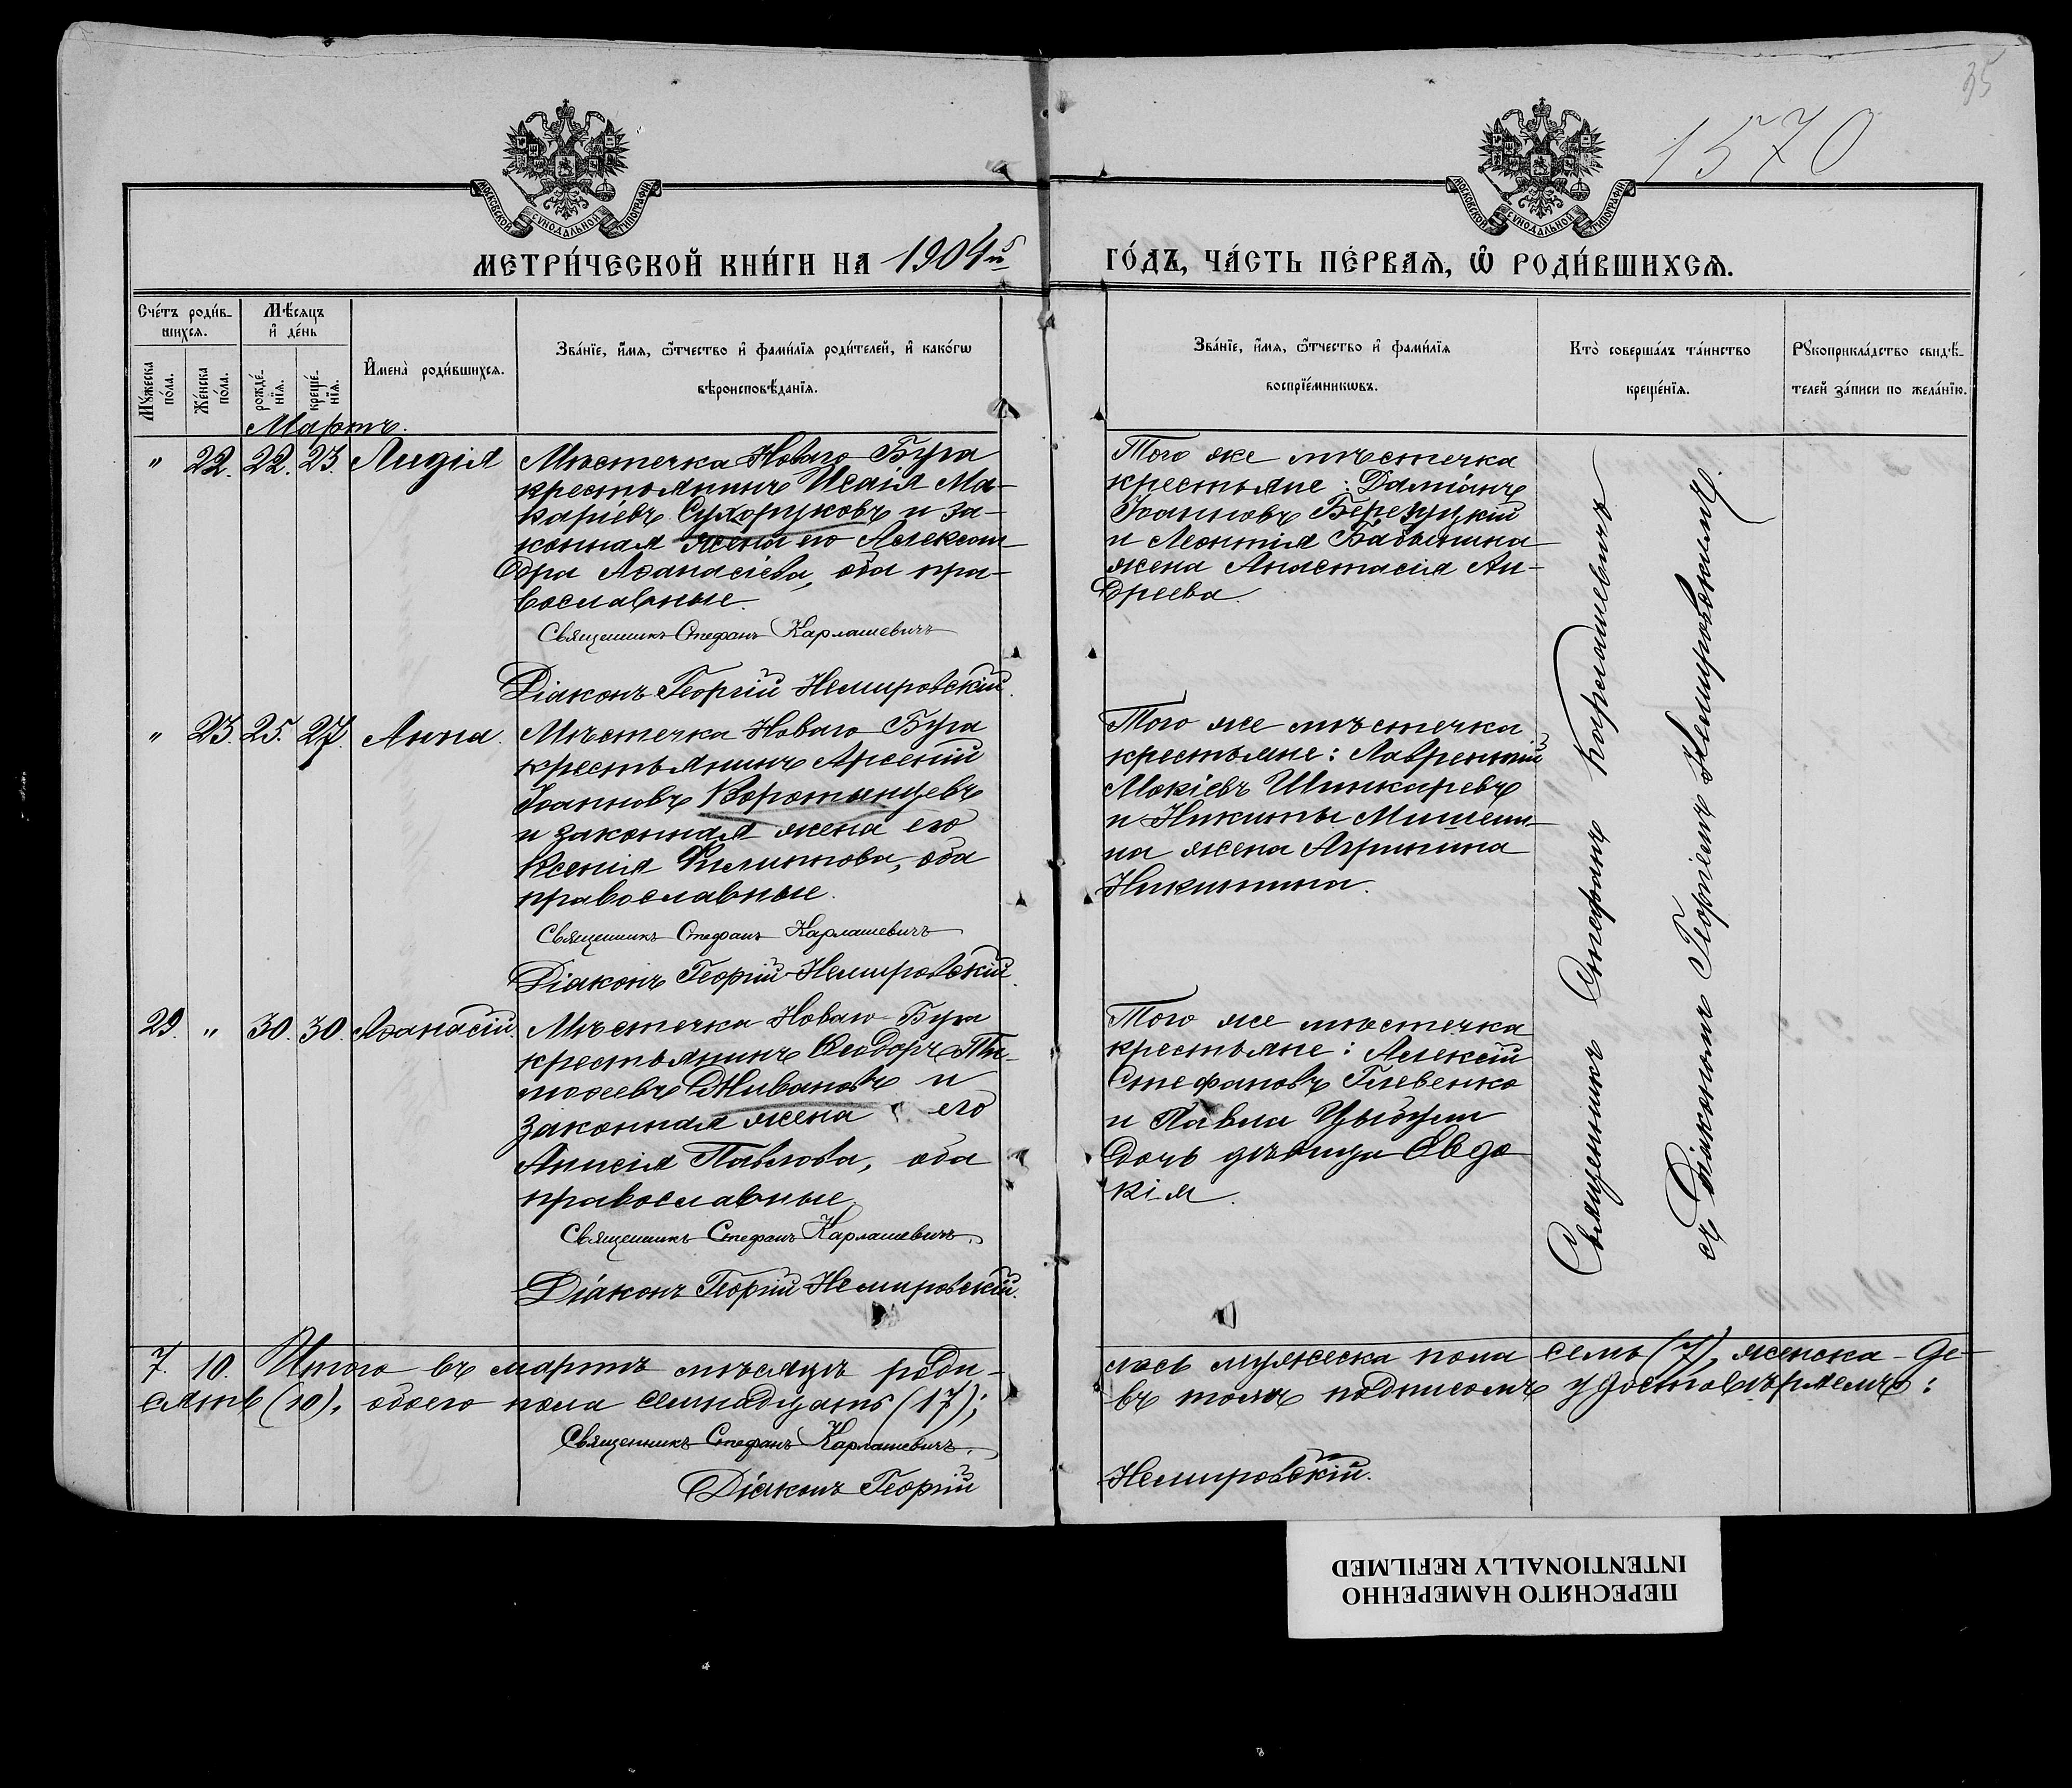 35
1570
МОСКОВСКОЙ СѴНОДАЛЬНОЙ ТИПОГРАФІИ
МОСКОВСКОЙ СѴНОДАЛЬНОЙ ТИПОГРАФІИ
МЕТРИ́ЧЕСКОЙ КНИ́ГИ НА 1904й ГО́ДЪ, ЧА́СТЬ ПЕ́РВАѦ, Ѡ҆ РОДИ́ВШИХСѦ.
Сче́тъ роди́в-
шихсѧ.
Мѣ́сѧцъ
и҆ де́нь
Мꙋ́жеска по́ла.
Же́нска по́ла.
рожде́-
нїѧ.
креще́-
нїѧ.
И҆мена̀ роди́вшихсѧ.
Зва́нїе, и҆́мѧ, ѻ҆́тчество и҆ фами́лїѧ роди́телей, и҆ како́гѡ
вѣроисповѣ́данїѧ.
Зва́нїе, и҆́мѧ, ѻ҆́тчество и҆ фами́лїѧ
воспрїе́мникѡвъ.
Кто̀ соверша́лъ та́инство
креще́нїѧ.
Рꙋкоприкла́дство свидѣ́-
телей за́писи по жела́нїю.
Мартъ.
" 22. 22. 23. Лидія
Мѣстечка Новаго Буга
крестьянинъ Исаія Ма-
каріевъ Сухоруковъ и за-
конная жена его Алексан-
дра Аѳанасіева, оба пра-
вославные.
Священникъ Стефанъ Карлашевичъ
Діаконъ Георгій Немировскій.
Того же мѣстечка
крестьяне: Даміанъ
Іоанновъ
и Леонтія
жена Анастасія Ан-
дреева.
" 23. 25. 27. Анна.
Мѣстечка Новаго Буга
крестьянинъ Арсеній
Іоанновъ Воротынцевъ
и законная жена его
Ксенія Филиппова, оба
православные.
Священникъ Стефанъ Карлашевичъ
Діаконъ Георгій Немировскій.
Того же мѣстечка
крестьяне: Лаврентій
Мокіевъ Шинкаревъ
и Никиты Мишени-
на жена Агрипина
Никитина.
29. " 30. 30. Аѳанасій.
Мѣстечка Новаго Буга
крестьянинъ Ѳеодоръ Ти-
моѳеевъ Живановъ и
законная жена его
Анисія Павлова, оба
православные.
Священникъ Стефанъ Карлашевичъ.
Діаконъ Георгій Немировскій.
Того же мѣстечка
крестьяне: Алексій
Стефановъ Глевенко
и Павла
дочь дѣвица Евдо
кія.
Священникъ Стефанъ Карлашевичъ
съ Діакономъ Георгіемъ Немировскимъ.
7. 10. Итого въ мартѣ мѣсяцѣ роди- лось мужеска пола семь (7), женска - де-
сять (10), обоего пола семнадцать (17); въ томъ подписомъ удостовѣряемъ:
Священникъ Стефанъ Карлашевичъ.
Діаконъ Георгій Немировскій.
ПЕРЕСНЯТО НАМЕРЕННО
INTENTIONALLY REFILMED